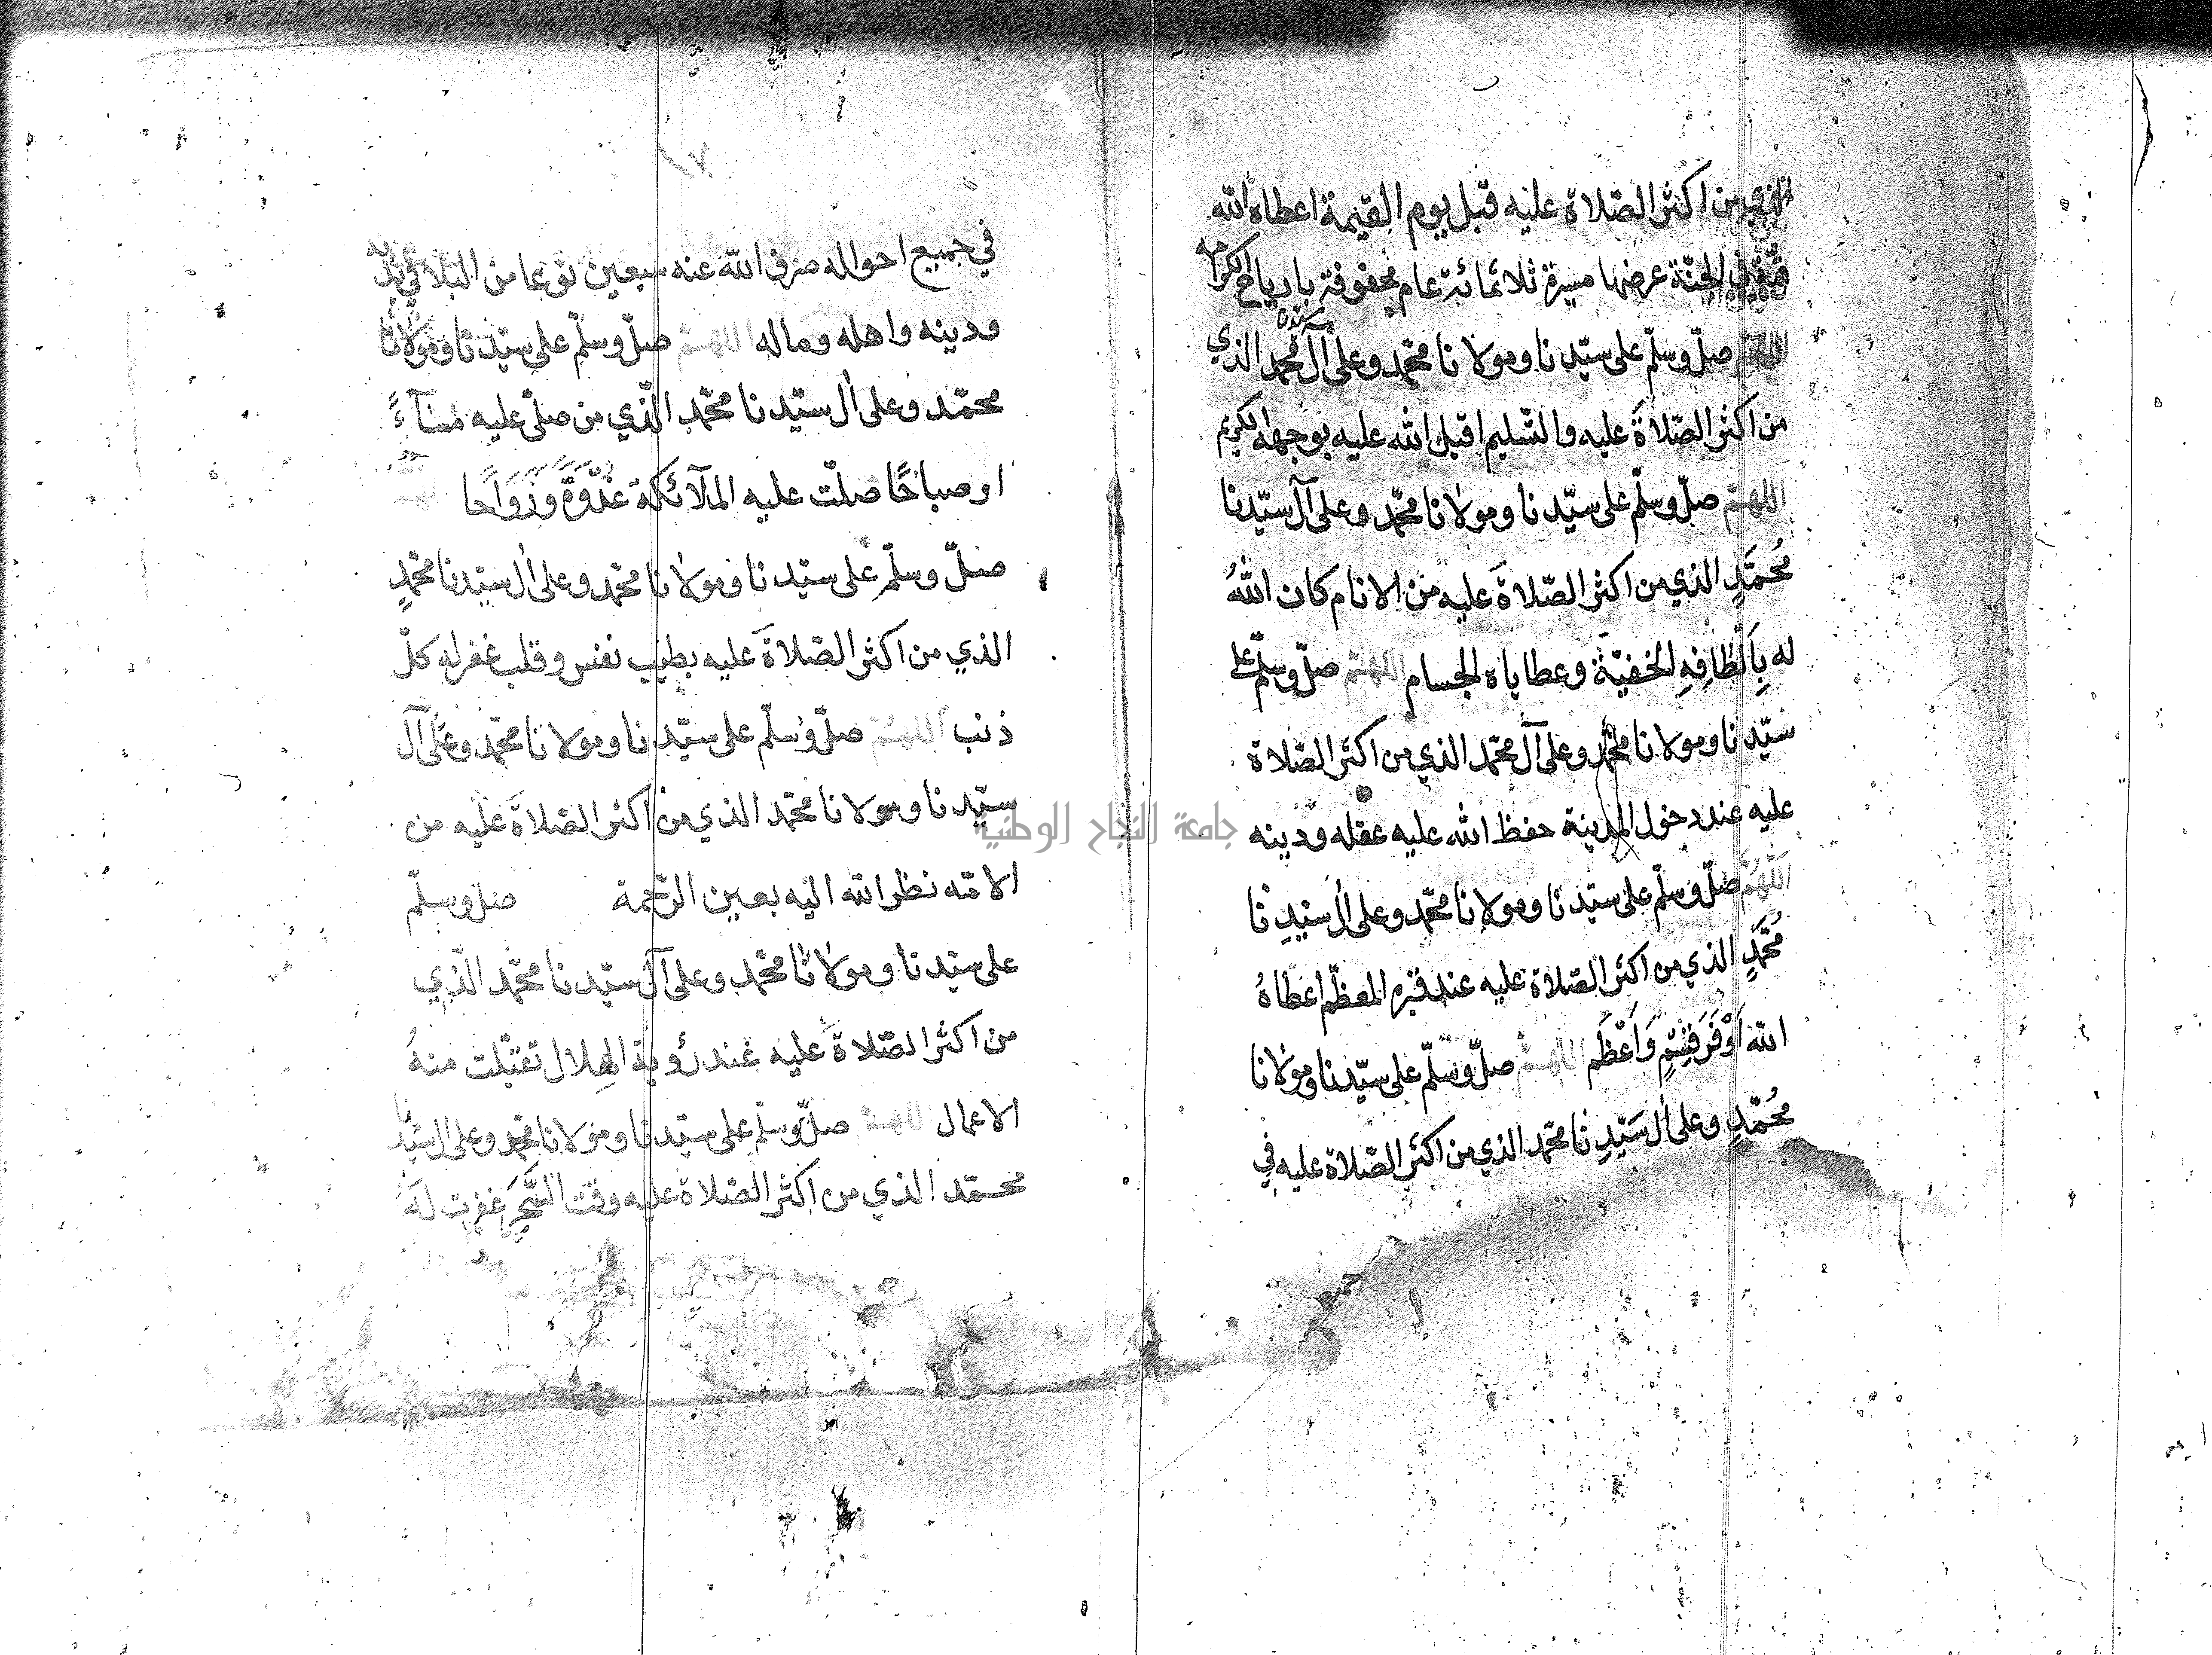 الذي من اكثر الصّلاة عليه قبل يوم القيمة اعطاه الله
قبّة في الجنّة عرضها مسيرة ثلاثمائة عام محفوفة بارياح الكرامه
اللهمّ صلّ وسلّم على سيّدنا ومولانا محمّد وعلى آل سيّدنا محمد الذي
من اكثر الصّلاةَ عليه والتّسليم اقبل الله عليه بوجهه الكريم
اللهمّ صلّ وسلّم على سيّدنا ومولانا محمّد وعلى آل سيّدنا
مُحمّدٍ الذي من اكثر الصّلاةَ عليه من الانام كان اللهُ
له بِاَلْطَافِهِ الخفيّة وعطاياه الجسام اللهمّ صلّ وسلّم على
سيّدنا ومولانا محمّد وعلى آل محمّد الذي من اكثر الصّلاة
عليه عند دخول المدينة حفظ الله عليه عقله ودينه
اللّهُمَّ صلّ وسلّم على سيّدنا ومولانا محمّد وعلى اٰل سيّدِنا
مُحَمَّدٍ الذي من اكثر الصّلاة عليه عند قبره المعظّم اعطاهُ
الله اَوْفَرَ قِسْمٍ وَاَعْظَم اللهمّ صلّ وسلّم على سيّدنا ومولانا
مُحَمّدٍ وعلى اٰل سَيّدِنا محمّد الذي من اكثر الصّلاة عليه في
جميع
في جميع احواله صرف الله عنه سبعين نوعا من البلا في بدنه
ودينه واهله وماله اللهمّ صلّ وسلّم على سيّدنا ومولانا
محمّد وعلى اٰل سيّدنا محمّد الّذي من صلّى عليه مسآءً
او صباحًا صلّت عليه الملآئكة غُدْوَةً وَرَوَاحًا اللهمّ
صلّ وسلّم على سيّدنا ومولانا محمّد وعلى اٰل سيّدنا محمّدٍ
الذي من اكثر الصّلاةَ عليه بطيب نفس وقلب غفر له كلّ
ذنب اللهمّ صلّ وسلّم على سيّدنا ومولانا محمّد وعلى آل
سيّدنا ومولانا محمّد الذي من اكثر الصّلاةَ عليه من
الامّه نظر الله اليه بعين الرّحمة صلّ وسلّم
على سيّدنا ومولانا محمّد وعلى آل سيّدنا محمّد الّذي
من اكثر الصّلاةَ عليه عند رؤية الهلال تقبّلت منهُ
الاعمال اللهمّ صلّ وسلّم على سيّدنا ومولانا محمّد وعلى اٰل سيّدنا
محمّد الذي من اكثر الصّلاة عليه وقت السَّحَر غفرت لَهُ
جامعة النجاح الوطنية